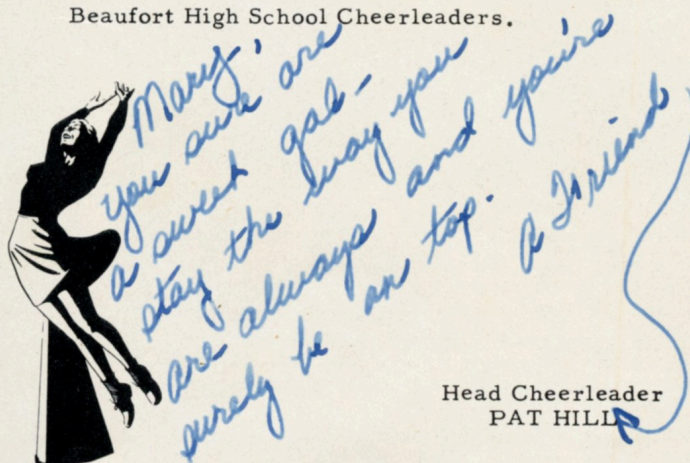 Beaufort High School Cheerleaders.
Mary,
you sure are
a sweet gal-
stay the way you
are always and you're
surely be on top.
A Friend,
Head Cheerleader
PAT HILL